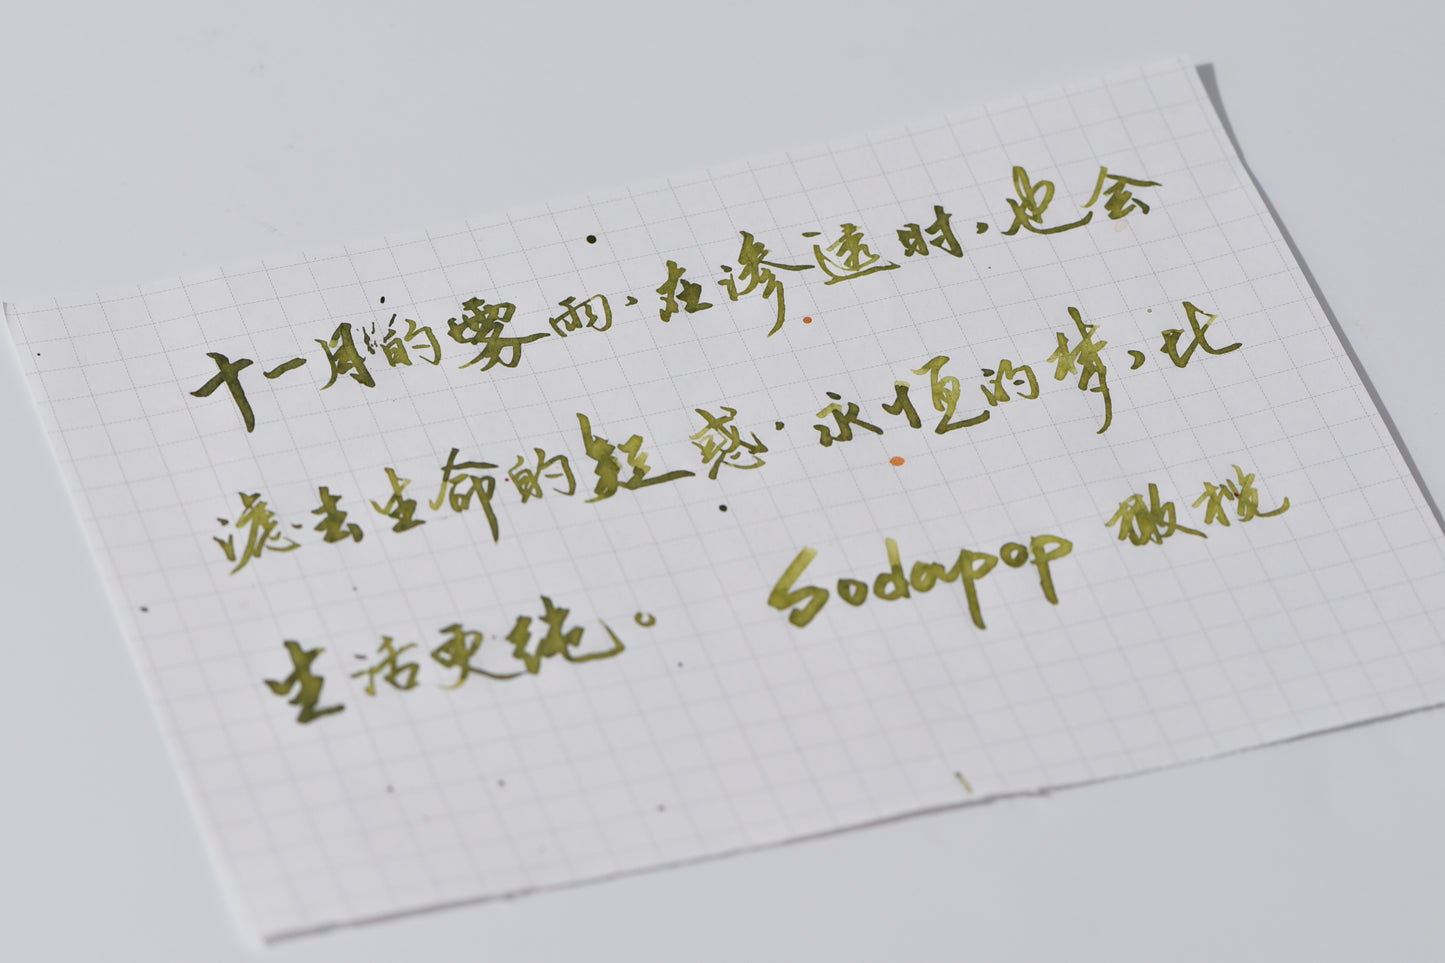 十一月的雾雨，在渗透时，也会
滤去生命的疑惑。永恒的梦，比
生活更纯。 Sodapop 橄榄